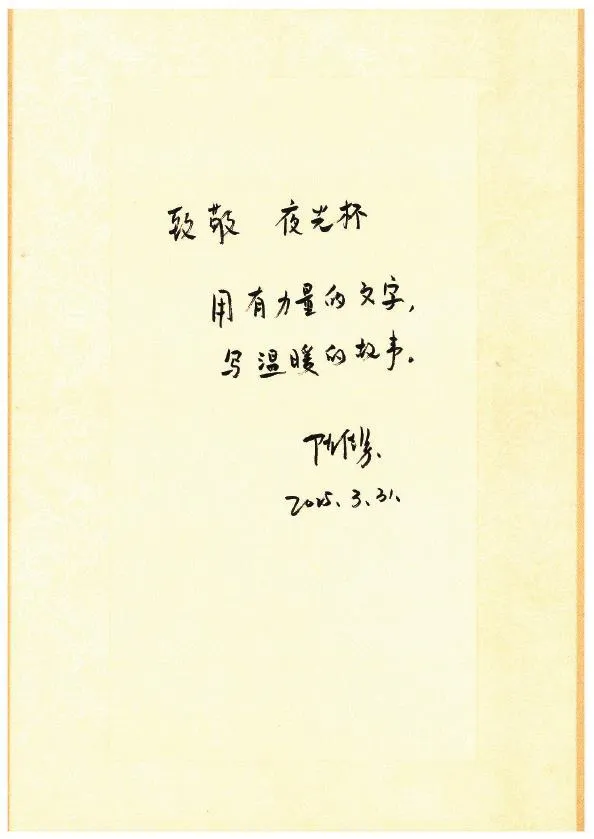 致敬 夜光杯
用有力量的文字,
写温暖的故事。
2025.3.31.